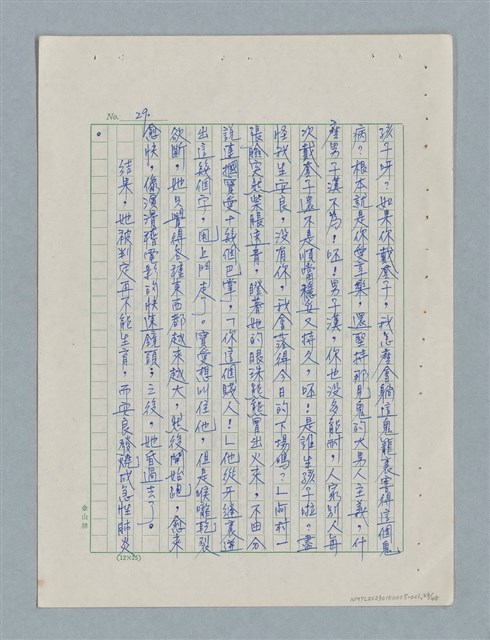 No. 29.
孩子呀?如果你戴套子,我怎麼會躺這鬼籠裏害得這個鬼
病?根本就是你愛享樂,還堅持那見鬼的大男人主義,什
麼男子漢不為!呸!男子漢,你也沒多能耐,人家別人每
次戴套子還不是順當穩妥又持久,呸!是誰生孩子啦?盡
怪我生安良,沒有你,我會落得今日的下場嗎?」阿村一
張臉突然柴脹清青,瞪著她的眼珠能冒出火來,不由分
說連摑寶愛十幾個巴掌,「你這個賤人!」他從牙縫裏迸
出這幾個字,甩上門走了。寶愛想叫住他,但是喉嚨乾裂
欲斷,她只覺得各種東西都越來越大,然後開始跑,愈來
愈快,像演滑稽電影的快速鏡頭;之後,她昏過去了。
結果,她被判定再不能生育,而安良發燒成急性肺炎
金山牌
(12×25)